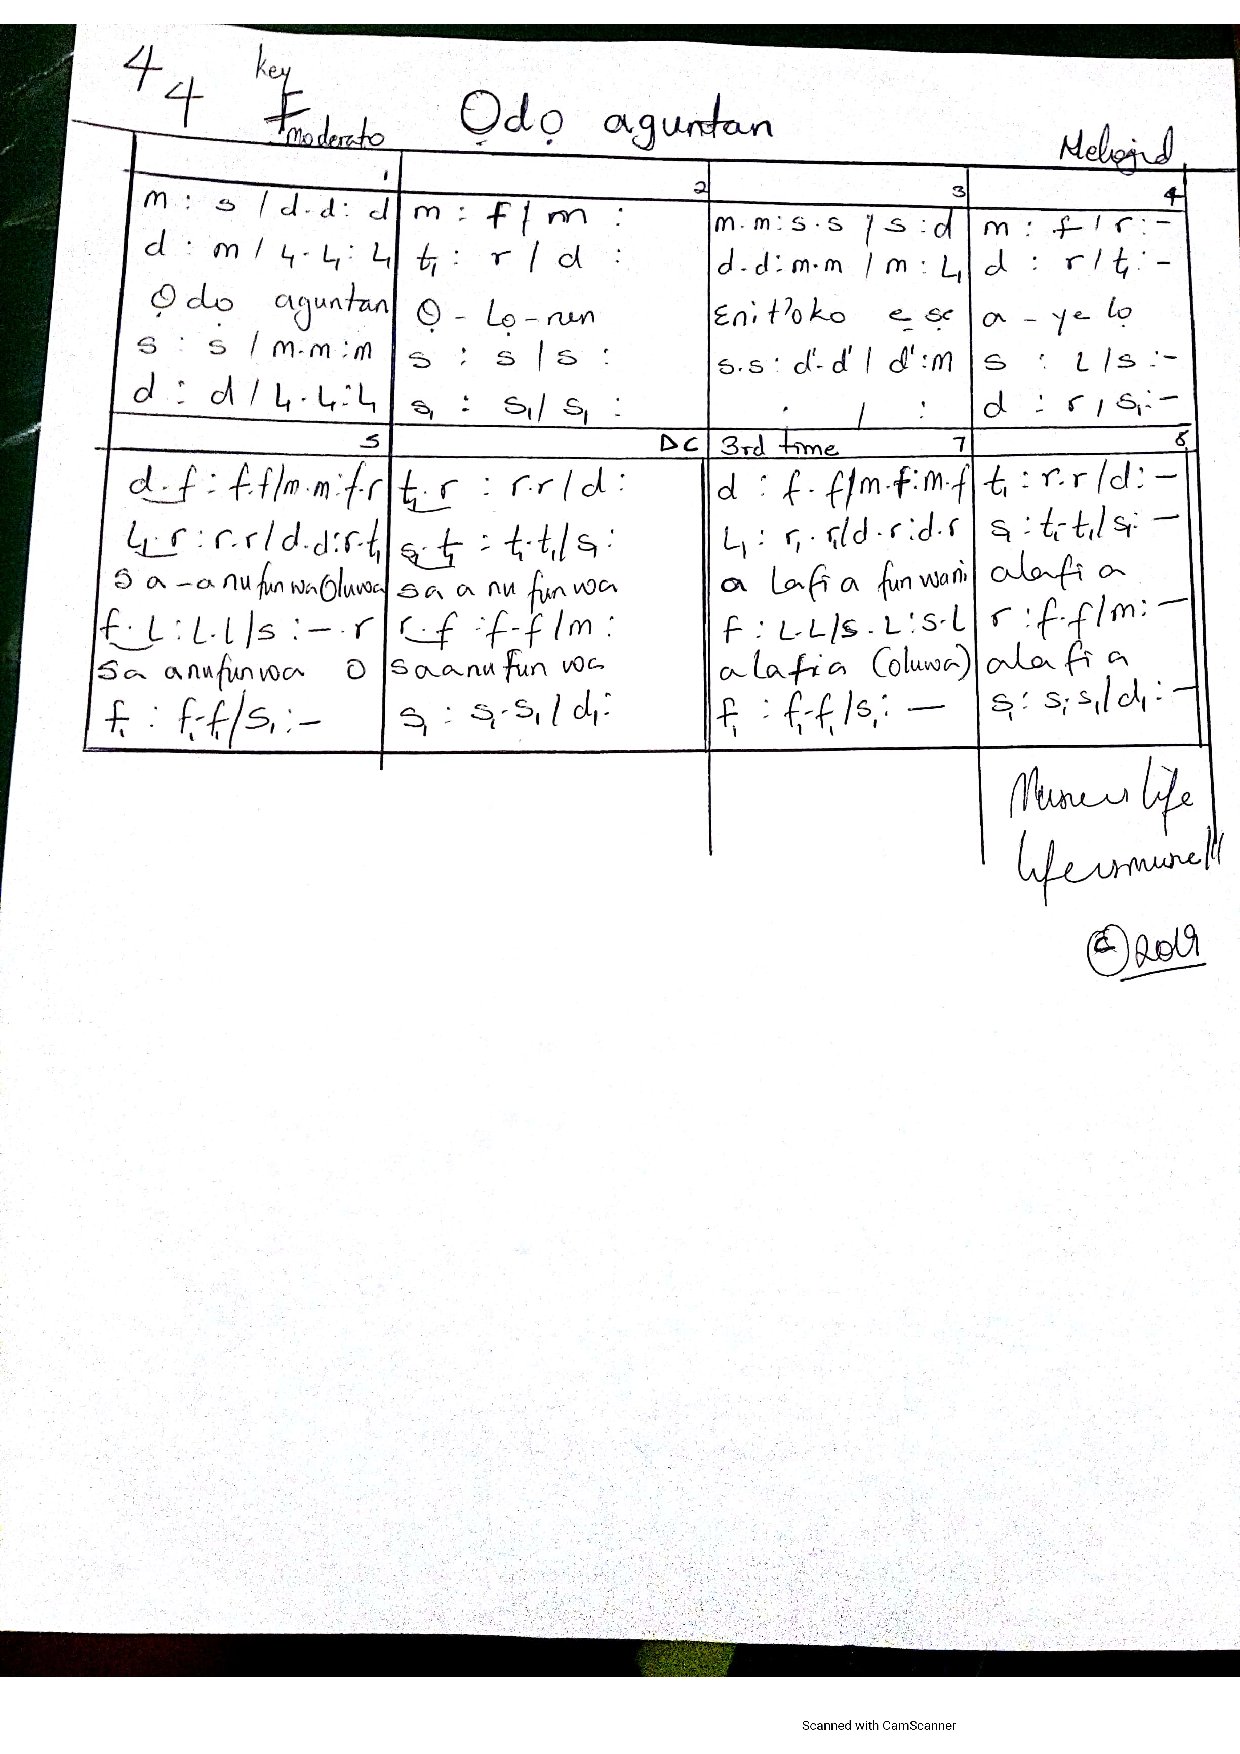 4
4
key
F
moderato
Ọdọ aguntan
1
2
3
4
m : s / d.d : d
m : f / m :
m.m : s.s / s : d
m : f / r : -
d : m / l₁.l₁ : l₁
t₁ : r / d :
d.d : m.m / m : l₁
d : r / t₁ : -
Ọdọ aguntan
Ọ - Lọ - run
Enit'oko ẹ sẹ
a - ye lọ
s : s / m.m : m
s : s / s :
s.s : d'.d' / d' : m
s : l / s : -
d : d / l₁.l₁ : l₁
s₁ : s₁ / s₁ :
. / :
d : r / s₁ : -
5
DC
3rd time
7
8
d.f : f.f / m.m : f.r
t₁.r : r.r / d :
d : f.f / m.f : m.f
t₁ : r.r / d : -
l₁.r : r.r / d.d : r.t₁
s₁.t₁ : t₁.t₁ / s₁ :
l₁ : r.r / d.r : d.r
s₁ : t₁.t₁ / s₁ : -
Sa - anu fun wa (Oluwa
sa a nu fun wa
a Lafi a fun wani
alafi a
f.l : l.l / s : - . r
r.f : f.f / m :
f : l.l / s.l : s.l
r : f.f / m : -
Sa anu fun wa O
sa anu fun wa
a lafia (oluwa)
ala fi a
f₁ : f₁.f₁ / s₁ : -
s₁ : s₁.s₁ / d₁ :
f₁ : f₁.f₁ / s₁ : -
s₁ : s₁.s₁ / d₁ : -
life
© 2019
Scanned with CamScanner